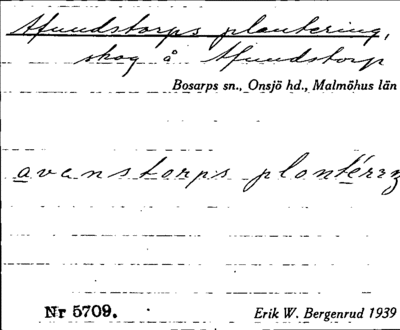 Afundstorps plantering,
skog å Afundstorp
Bosarps sn., Onsjö hd., Malmöhus län
avanstorps plantérrz
Nr 5709.
Erik W. Bergenrud 1939